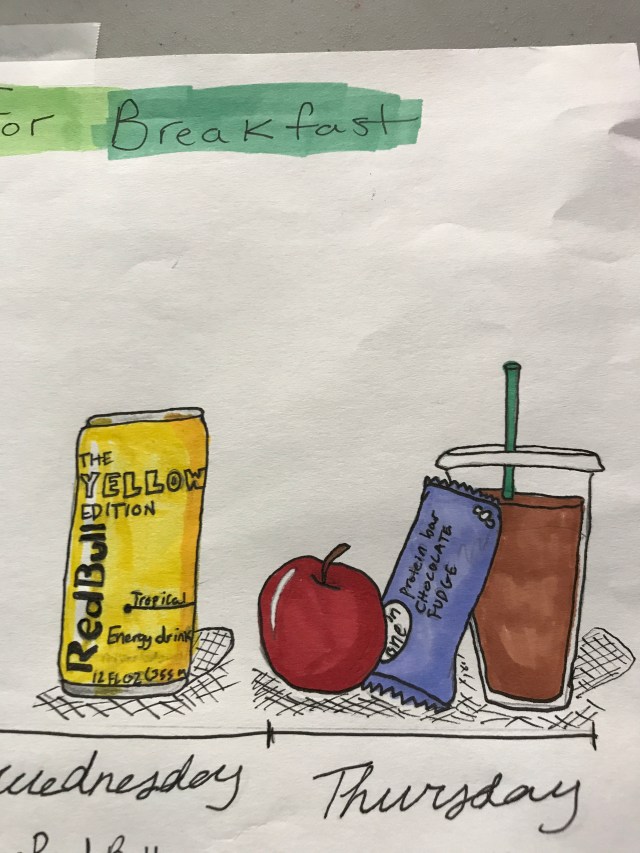 For Breakfast
THE
YELLOW
EDITION
RedBull
Tropical
Energy drink
12 FL OZ (355 m
Protein bar
CHOCOLATE
FUDGE
one
wednesday
Thursday
Red Bull